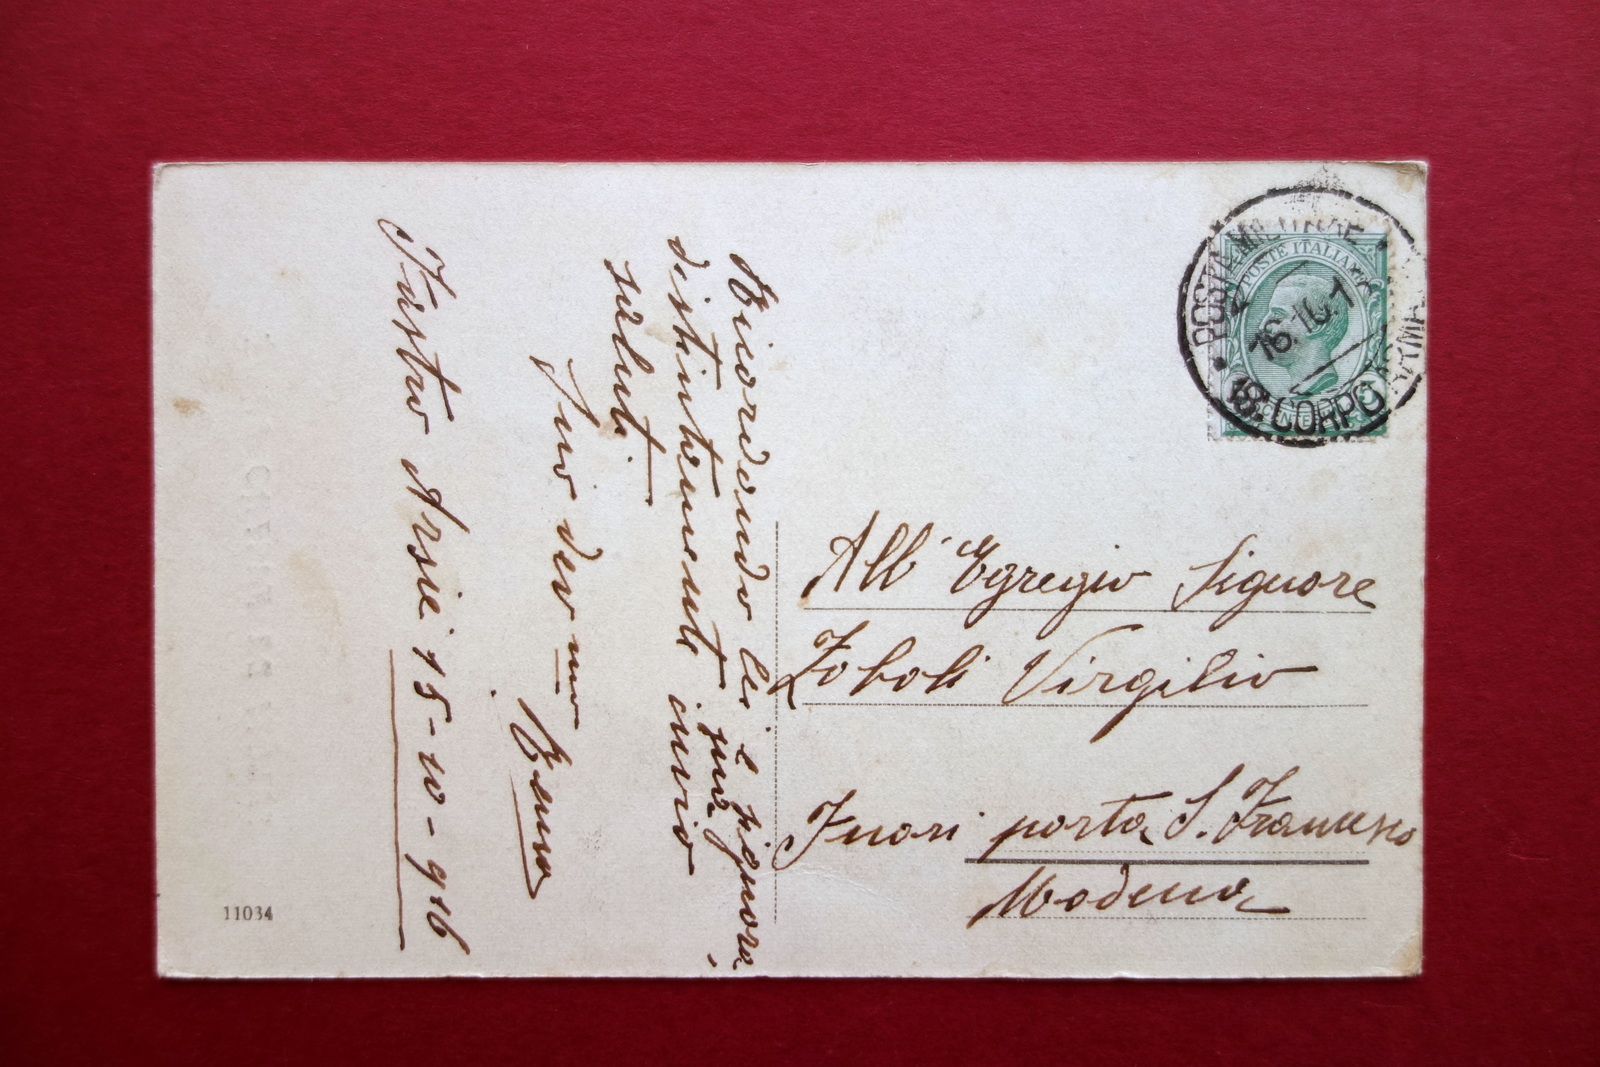 Ricordando lei e signora,
distintamente invio
saluti
Suo dev mo
Fastro Arsiè 15-10-916
11034
POSTA MILITARE
16.10.1
18° CORPO ARMA
POSTE ITALIANE
All' Egregio Signore
Zoboli Virgilio
Fuori porta S. Francesco
Modena